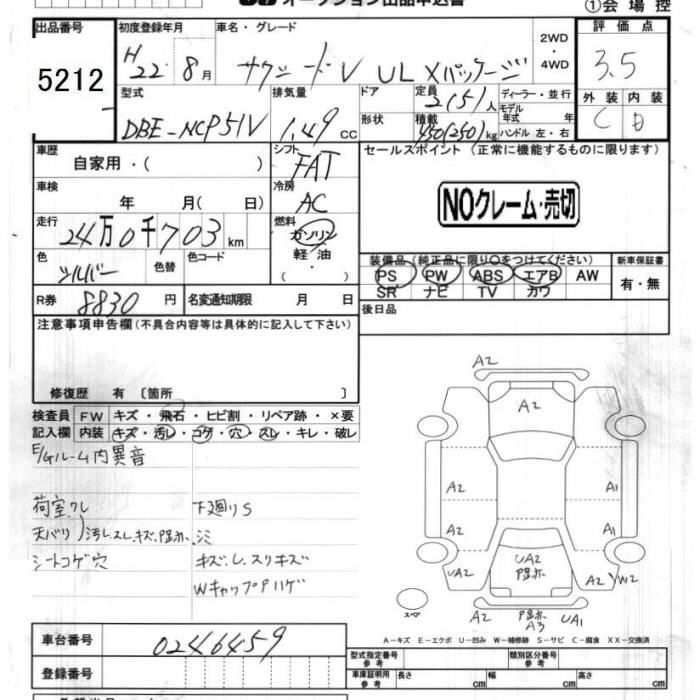 オークション出品申込書 ①会場控
出品番号 初度登録年月 車名・グレード 2WD・4WD 評価点
5212 H22年8月 サクシードV UL Xパッケージ 3.5
型式 排気量 ドア 定員 2(5)人 ディーラー・並行 外装 内装
DBE-NCP51V 1.49 CC 形状 積載 450(250)kg モデル年式 年 ハンドル 左・右 C D
車歴 自家用・( ) シフト FAT セールスポイント (正常に機能するものに限ります)
車検 年 月(日) 冷房 AC NOクレーム・売切
走行 24万0千703km 燃料 ガソリン・軽油・( )
色 シルバー 色替 色コード
装備品 (純正品に限り○をつけてください) 新車保証書
PS PW ABS エアB AW 有・無
SR ナビ TV カワ
R券 8830円 名変通知期限 月 日 後日品
注意事項申告欄(不具合内容等は具体的に記入して下さい)
修復歴 有 〔箇所 〕
検査員 FW キズ・飛石・ヒビ割・リペア跡・×要
記入欄 内装 キズ・汚レ・コゲ・穴・スレ・キレ・破レ
E/Gルーム内異音
荷室クレ 下廻りS
天バリ)汚レスレ.キズ.凹.シミ
シートコゲ穴 キズし.スリキズ
WキャップPハゲ
A2
A2
A2 A1
A2 A1
UA2 UA2 A2 W2
スペア A2 A3 UA1
A-キズ E-エクボ U-凹み W-補修跡 S-サビ C-腐食 XX-交換済
車台番号 0246459
登録番号
型式指定番号 参考 類別区分番号 参考
車庫証明用 参考 長さ cm 幅 cm 高さ cm